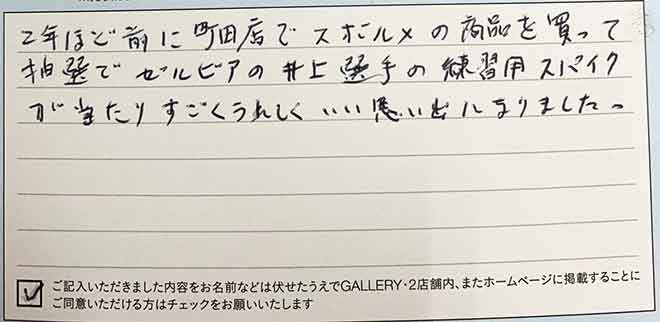 2年ほど前に町田店でスボルメの商品を買って
抽選でゼルビアの井上選手の練習用スパイク
が当たりすごくうれしくいい思い出になりました。
ご記入いただきました内容をお名前などは伏せたうえでGALLERY・2店舗内、またホームページに掲載することに
ご同意いただける方はチェックをお願いいたします